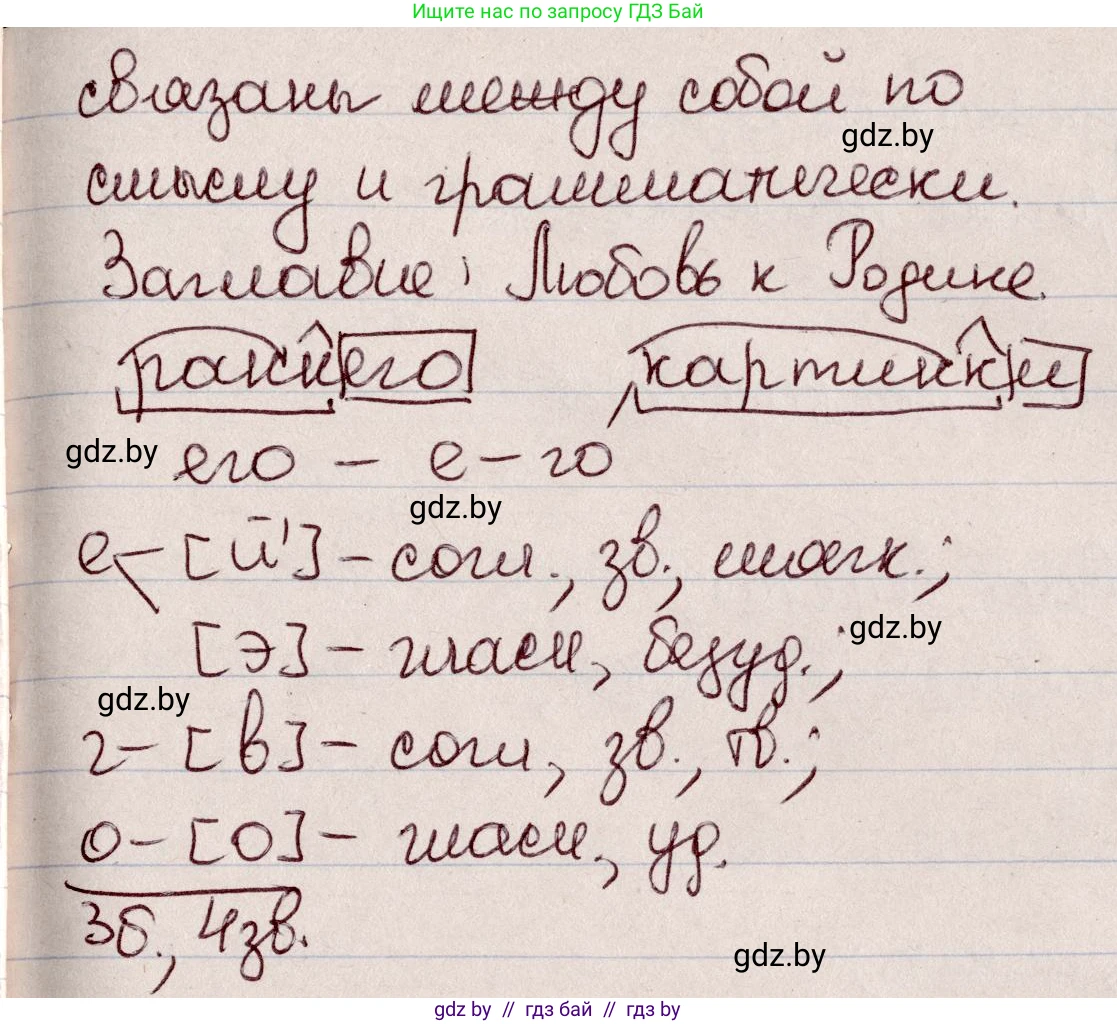 Ищите нас по запросу ГДЗ Бай
связаны между собой по
gdz.by
смыслу и грамматически.
Заглавие: Любовь к Родине.
раннего картинки
gdz.by
его – е–го
gdz.by
е – [й'] – согл., зв., мягк.;
[э] – гласн, безуд.;
gdz.by
gdz.by
г – [в] – согл, зв., тв.;
о – [о] – гласн., уд.
3б., 4зв.
gdz.by
gdz.by // гдз бай // gdz by